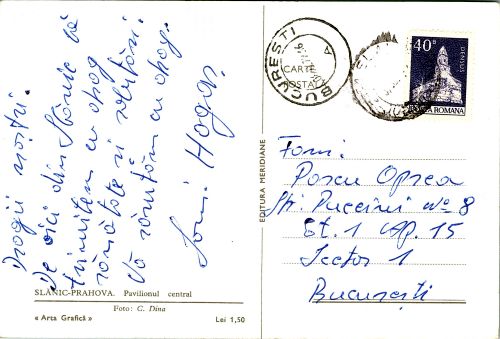 Dragii noștri.
De aici din Slănic vă
trimitem cu drag
sănătate și salutări.
Vă sărutăm cu drag.
Fam. Hagas
SLĂNIC-PRAHOVA. Pavilionul central
Foto: C. Dina
« Arta Grafică »
Lei 1,50
EDITURA MERIDIANE
BUCUREȘTI
CARTE
40
DENSUȘ
POȘTA ROMANA
Fam.
Pascu Oprea
Str. Puccini № 8
Et. 1 ap. 15
Sector 1
București